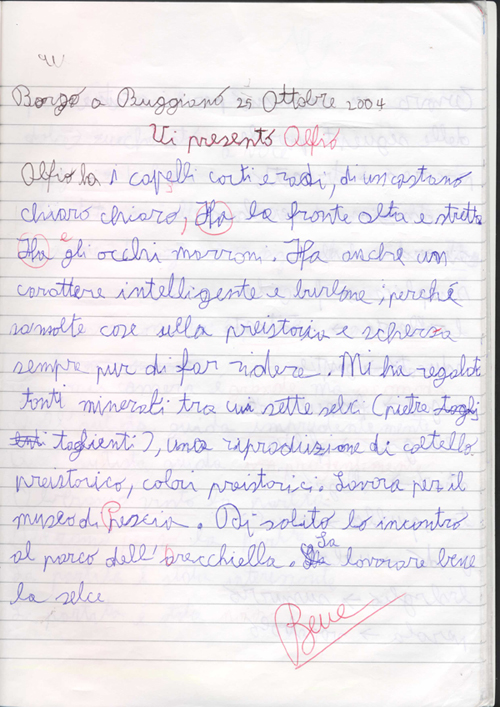 Borgo a Buggiano 25 Ottobre 2004
Vi presento Alfio
Alfio ha i capelli corti e radi, di un castano
chiaro chiaro, Ha la fronte alta e stretta
Ha e gli occhi marroni. Ha anche un
carattere intelligente e burlone, perché
sa molte cose sulla preistoria e scherza
sempre pur di far ridere. Mi ha regalato
tanti minerali tra cui sette selci (pietre
taglienti), una riproduzione di coltello
preistorico, colori preistorici. Lavora per il
museo di Pescia. Di solito lo incontro
al parco dell'Orecchiella. Sa lavorare bene
la selce
Bene